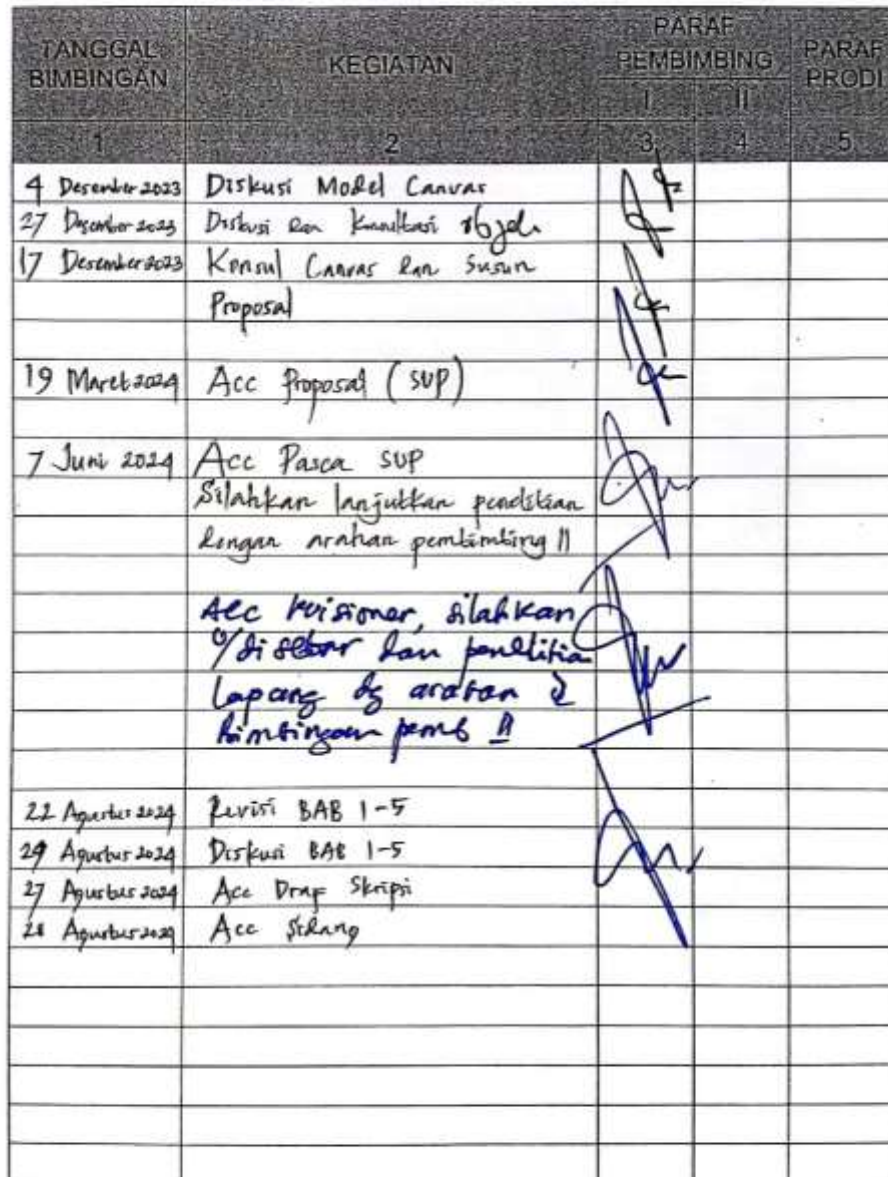 TANGGAL BIMBINGAN KEGIATAN PARAF PEMBIMBING PARAF PRODI
I II
1 2 3 4 5
4 Desember 2023 Diskusi Model Canvas
27 Desember 2023 Diskusi dan Konsultasi objek
17 Desember 2023 Konsul Canvas dan Susun
Proposal
19 Maret 2024 Acc Proposal (SUP)
7 Juni 2024 Acc Pasca SUP
Silahkan lanjutkan penelitian
dengan arahan pembimbing II
Acc kuisioner, silahkan
u/ di sebar dan penelitia
lapang dg arahan &
bimbingan pemb II
22 Agustus 2024 Revisi BAB 1-5
Agustus 2024 Diskusi BAB 1-5
27 Agustus 2024 Acc Draf Skripsi
28 Agustus 2024 Acc Sidang